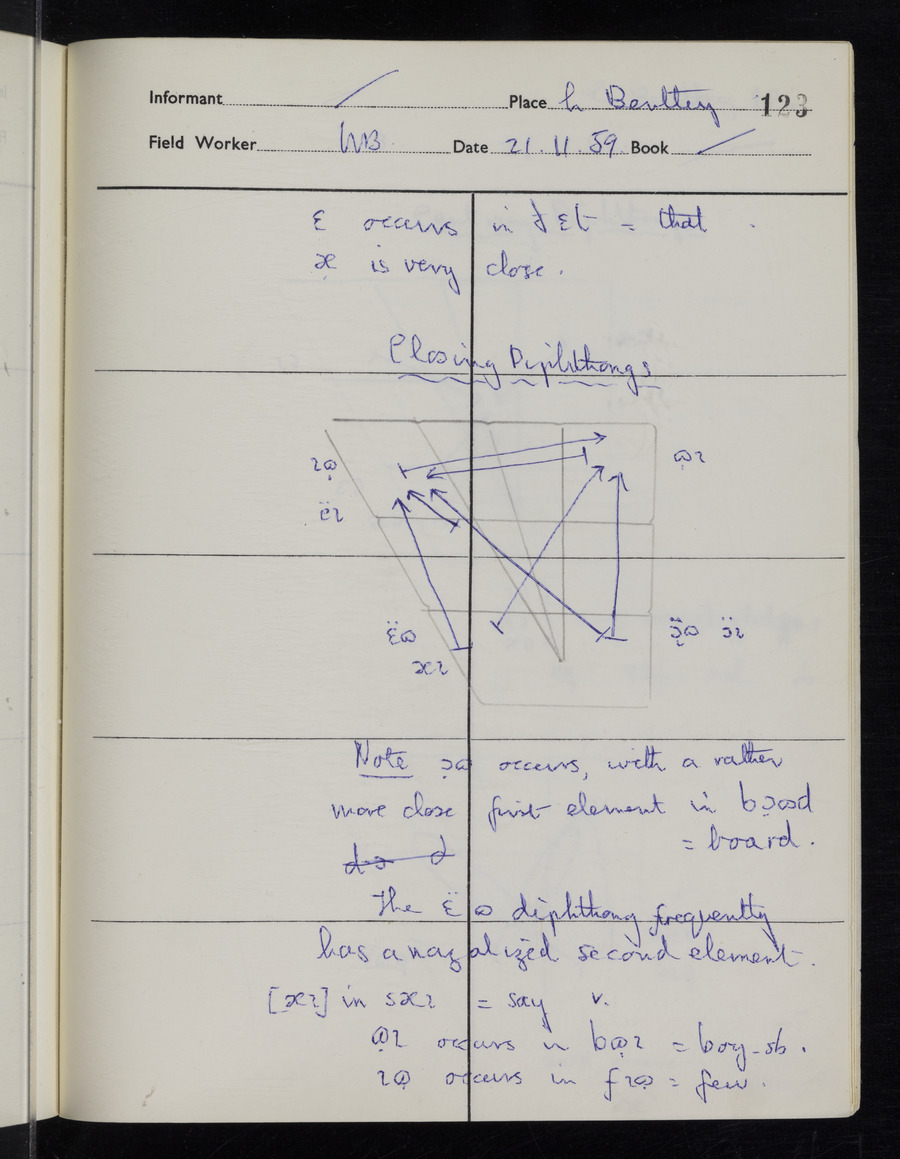 Informant Place h Bentley 123
Field Worker WB Date 21.11.59 Book
ɛ occurs in ðɛt = that.
æ̣ is very close.
Closing Diphthongs
ɩɷ̣ ɷ̣ɩ
ëɩ
ɛ̈ɷ ɔ̣̈ɷ ɔ̈ɩ
æɩ
Note ɔɷ occurs, with a rather
more close first element in bɔɷd
= board.
The ɛ̈ɷ diphthong frequently
has a nazalized second element.
[æɩ] in sæɩ = say v.
ɷ̣ɩ occurs in bɷ̣ɩ = boy-sb.
ɩɷ̣ occurs in fɩɷ̣ = few.